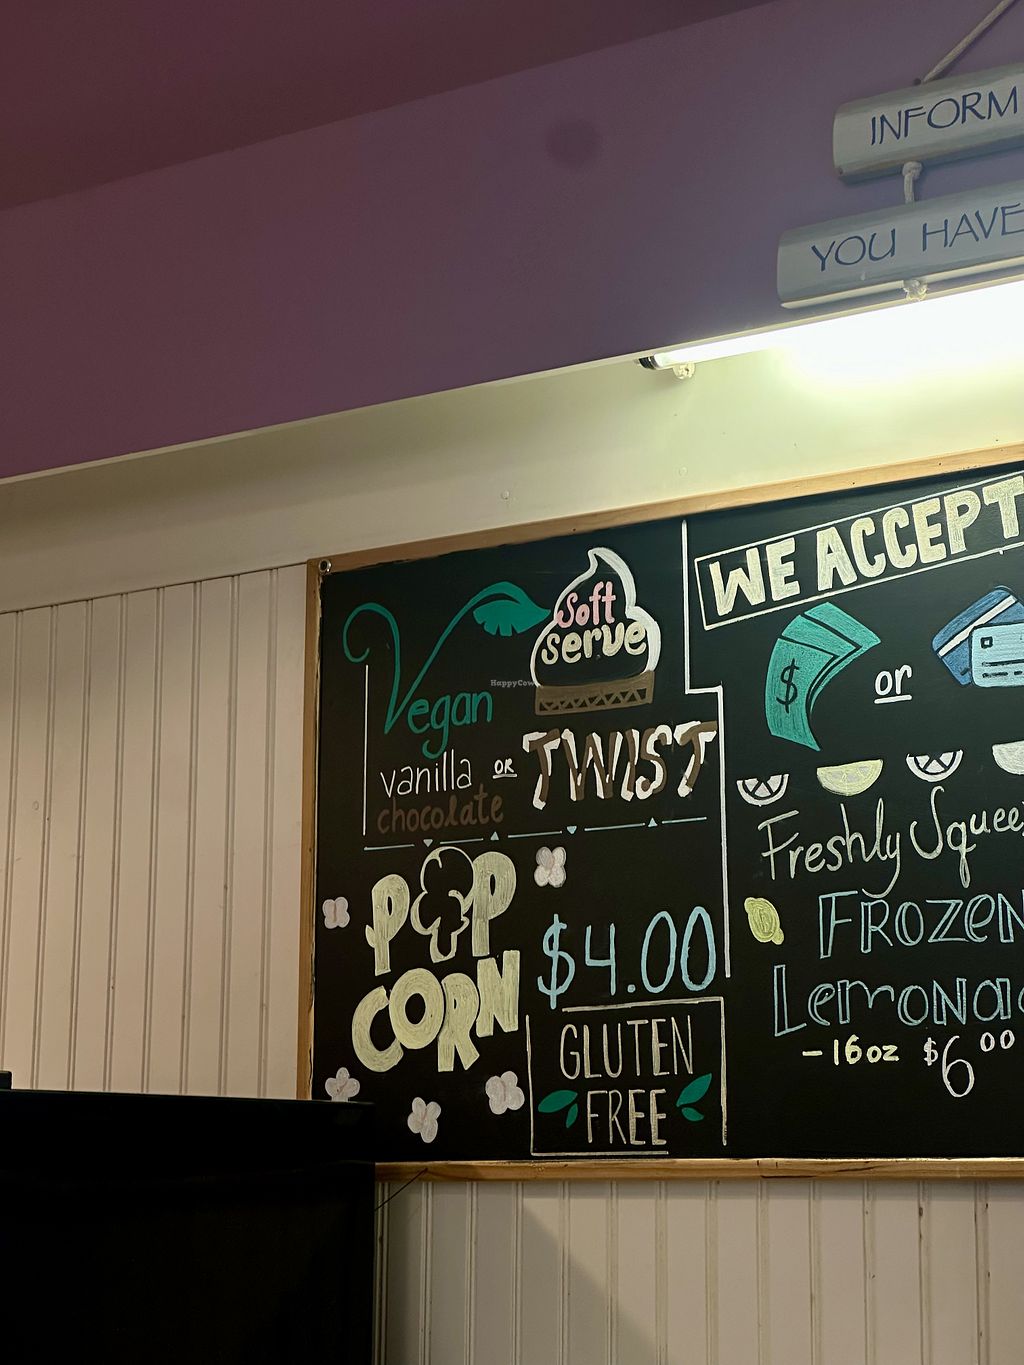 INFORM
YOU HAVE
WE ACCEPT
$
or
Soft
serve
Vegan
HappyCow
vanilla OR TWIST
chocolate
POP
CORN
$4.00
GLUTEN
FREE
Freshly Squee
FROZEN
LEMONA
-16oz $6.00